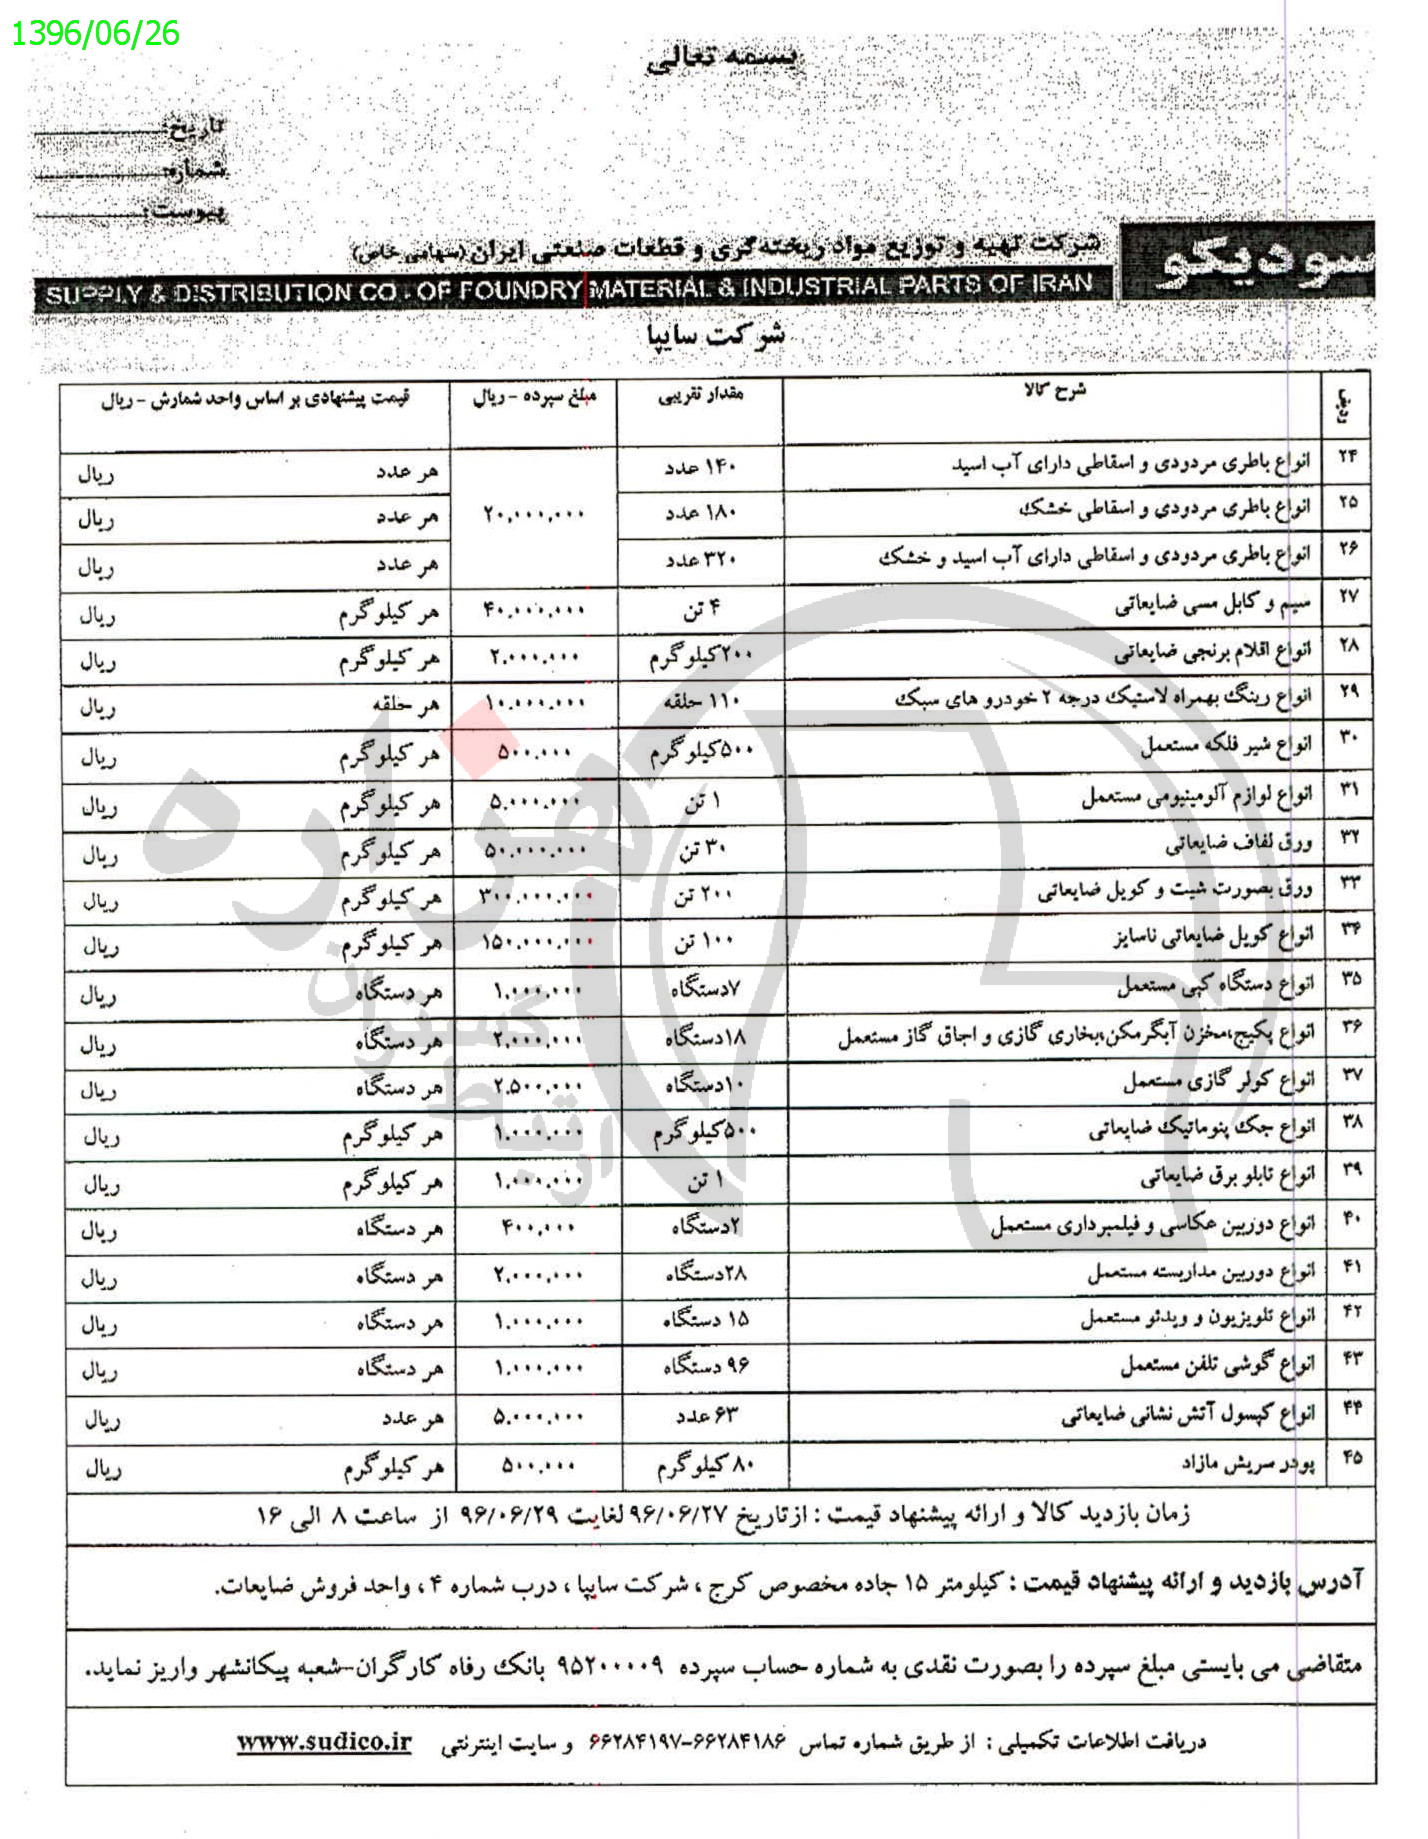 1396/06/26
بسمه تعالی
تاریخ:
شماره:
پیوست:
سودیکو
شرکت تهیه و توزیع مواد ریخته‌گری و قطعات صنعتی ایران (سهامی خاص)
SUPPLY & DISTRIBUTION CO. OF FOUNDRY MATERIAL & INDUSTRIAL PARTS OF IRAN
شرکت سایپا
ردیف شرح کالا مقدار تقریبی مبلغ سپرده - ریال قیمت پیشنهادی بر اساس واحد شمارش - ریال
۲۴ انواع باطری مردودی و اسقاطی دارای آب اسید ۱۴۰ عدد هر عدد ریال
۲۵ انواع باطری مردودی و اسقاطی خشک ۱۸۰ عدد ۲۰,۰۰۰,۰۰۰ هر عدد ریال
۲۶ انواع باطری مردودی و اسقاطی دارای آب اسید و خشک ۳۲۰ عدد هر عدد ریال
۲۷ سیم و کابل مسی ضایعاتی ۴ تن ۴۰,۰۰۰,۰۰۰ هر کیلوگرم ریال
۲۸ انواع اقلام برنجی ضایعاتی ۲۰۰ کیلوگرم ۲,۰۰۰,۰۰۰ هر کیلوگرم ریال
۲۹ انواع رینگ بهمراه لاستیک درجه ۲ خودرو های سبک ۱۱۰ حلقه ۱۰,۰۰۰,۰۰۰ هر حلقه ریال
۳۰ انواع شیر فلکه مستعمل ۵۰۰ کیلوگرم ۵۰۰,۰۰۰ هر کیلوگرم ریال
۳۱ انواع لوازم آلومینیومی مستعمل ۱ تن ۵,۰۰۰,۰۰۰ هر کیلوگرم ریال
۳۲ ورق لفاف ضایعاتی ۳۰ تن ۵۰,۰۰۰,۰۰۰ هر کیلوگرم ریال
۳۳ ورق بصورت شیت و کویل ضایعاتی ۲۰۰ تن ۳۰۰,۰۰۰,۰۰۰ هر کیلوگرم ریال
۳۴ انواع کویل ضایعاتی ناسایز ۱۰۰ تن ۱۵۰,۰۰۰,۰۰۰ هر کیلوگرم ریال
۳۵ انواع دستگاه کپی مستعمل ۷ دستگاه ۱,۰۰۰,۰۰۰ هر دستگاه ریال
۳۶ انواع پکیج،مخزن آبگرمکن،بخاری گازی و اجاق گاز مستعمل ۱۸ دستگاه ۲,۰۰۰,۰۰۰ هر دستگاه ریال
۳۷ انواع کولر گازی مستعمل ۱۰ دستگاه ۲,۵۰۰,۰۰۰ هر دستگاه ریال
۳۸ انواع جک پنوماتیک ضایعاتی ۵۰۰ کیلوگرم ۱,۰۰۰,۰۰۰ هر کیلوگرم ریال
۳۹ انواع تابلو برق ضایعاتی ۱ تن ۱,۰۰۰,۰۰۰ هر کیلوگرم ریال
۴۰ انواع دوربین عکاسی و فیلمبرداری مستعمل ۲ دستگاه ۴۰۰,۰۰۰ هر دستگاه ریال
۴۱ انواع دوربین مداربسته مستعمل ۲۸ دستگاه ۲,۰۰۰,۰۰۰ هر دستگاه ریال
۴۲ انواع تلویزیون و ویدئو مستعمل ۱۵ دستگاه ۱,۰۰۰,۰۰۰ هر دستگاه ریال
۴۳ انواع گوشی تلفن مستعمل ۹۶ دستگاه ۱,۰۰۰,۰۰۰ هر دستگاه ریال
۴۴ انواع کپسول آتش نشانی ضایعاتی ۶۳ عدد ۵,۰۰۰,۰۰۰ هر عدد ریال
۴۵ پودر سریش مازاد ۸۰ کیلوگرم ۵۰۰,۰۰۰ هر کیلوگرم ریال
زمان بازدید کالا و ارائه پیشنهاد قیمت : از تاریخ ۹۶/۰۶/۲۷ لغایت ۹۶/۰۶/۲۹ از ساعت ۸ الی ۱۶
آدرس بازدید و ارائه پیشنهاد قیمت : کیلومتر ۱۵ جاده مخصوص کرج ، شرکت سایپا ، درب شماره ۴ ، واحد فروش ضایعات.
متقاضی می بایستی مبلغ سپرده را بصورت نقدی به شماره حساب سپرده ۹۵۲۰۰۰۰۹ بانک رفاه کارگران-شعبه پیکانشهر واریز نماید.
دریافت اطلاعات تکمیلی : از طریق شماره تماس ۶۶۲۸۴۱۸۶-۶۶۲۸۴۱۹۷ و سایت اینترنتی www.sudico.ir
هزاره
گستران
ارتباط